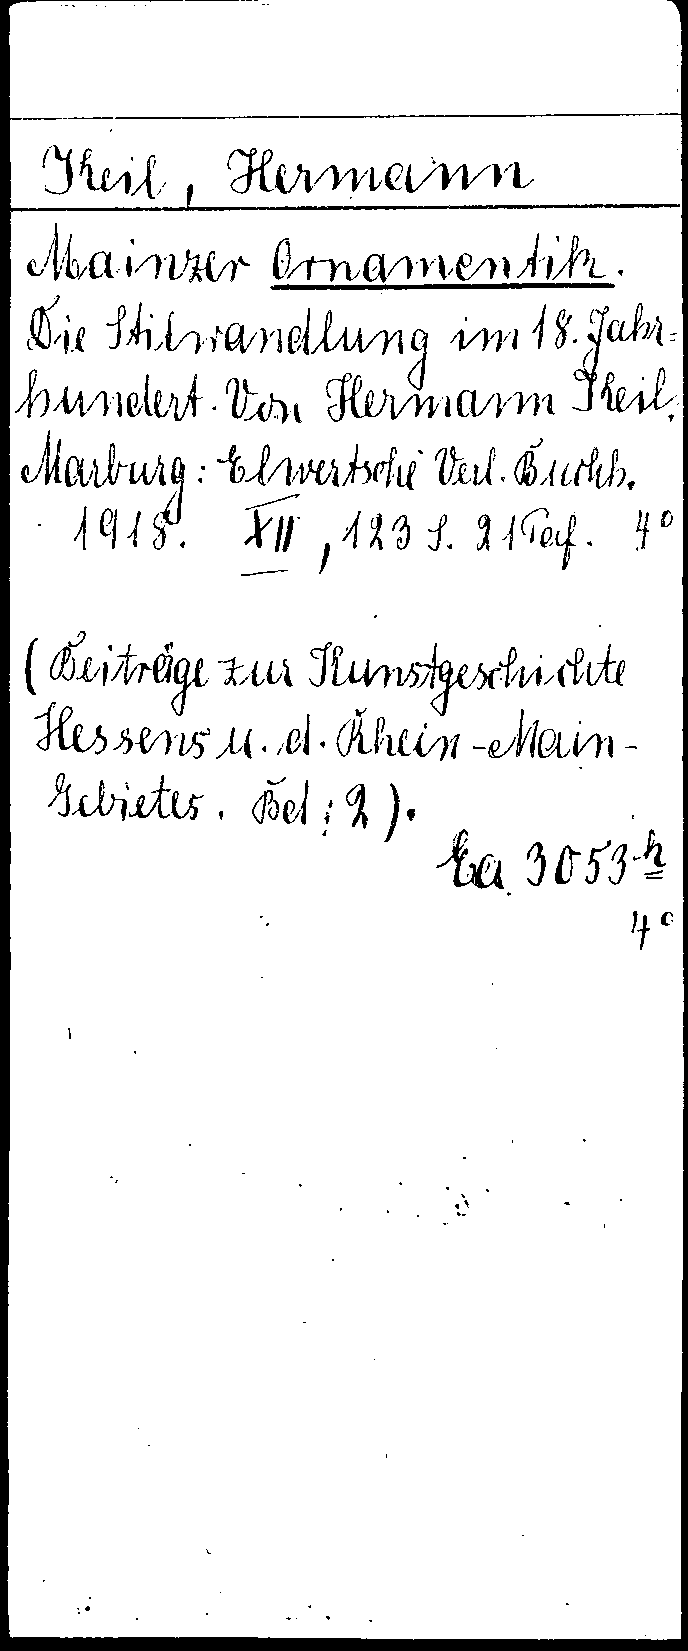 Keil, Hermann
Mainzer Ornamentik.
Die Stilwandlung im 18. Jahr=
hundert. Von Hermann Keil.
Marburg: Elwertsche Verl. Buchh.
1918. XII, 123 S. 21 Taf. 4°
(Beiträge zur Kunstgeschichte
Hessens u. d. Rhein-Main-
Gebietes. Bd: 2).
Ea 3053 h
4°